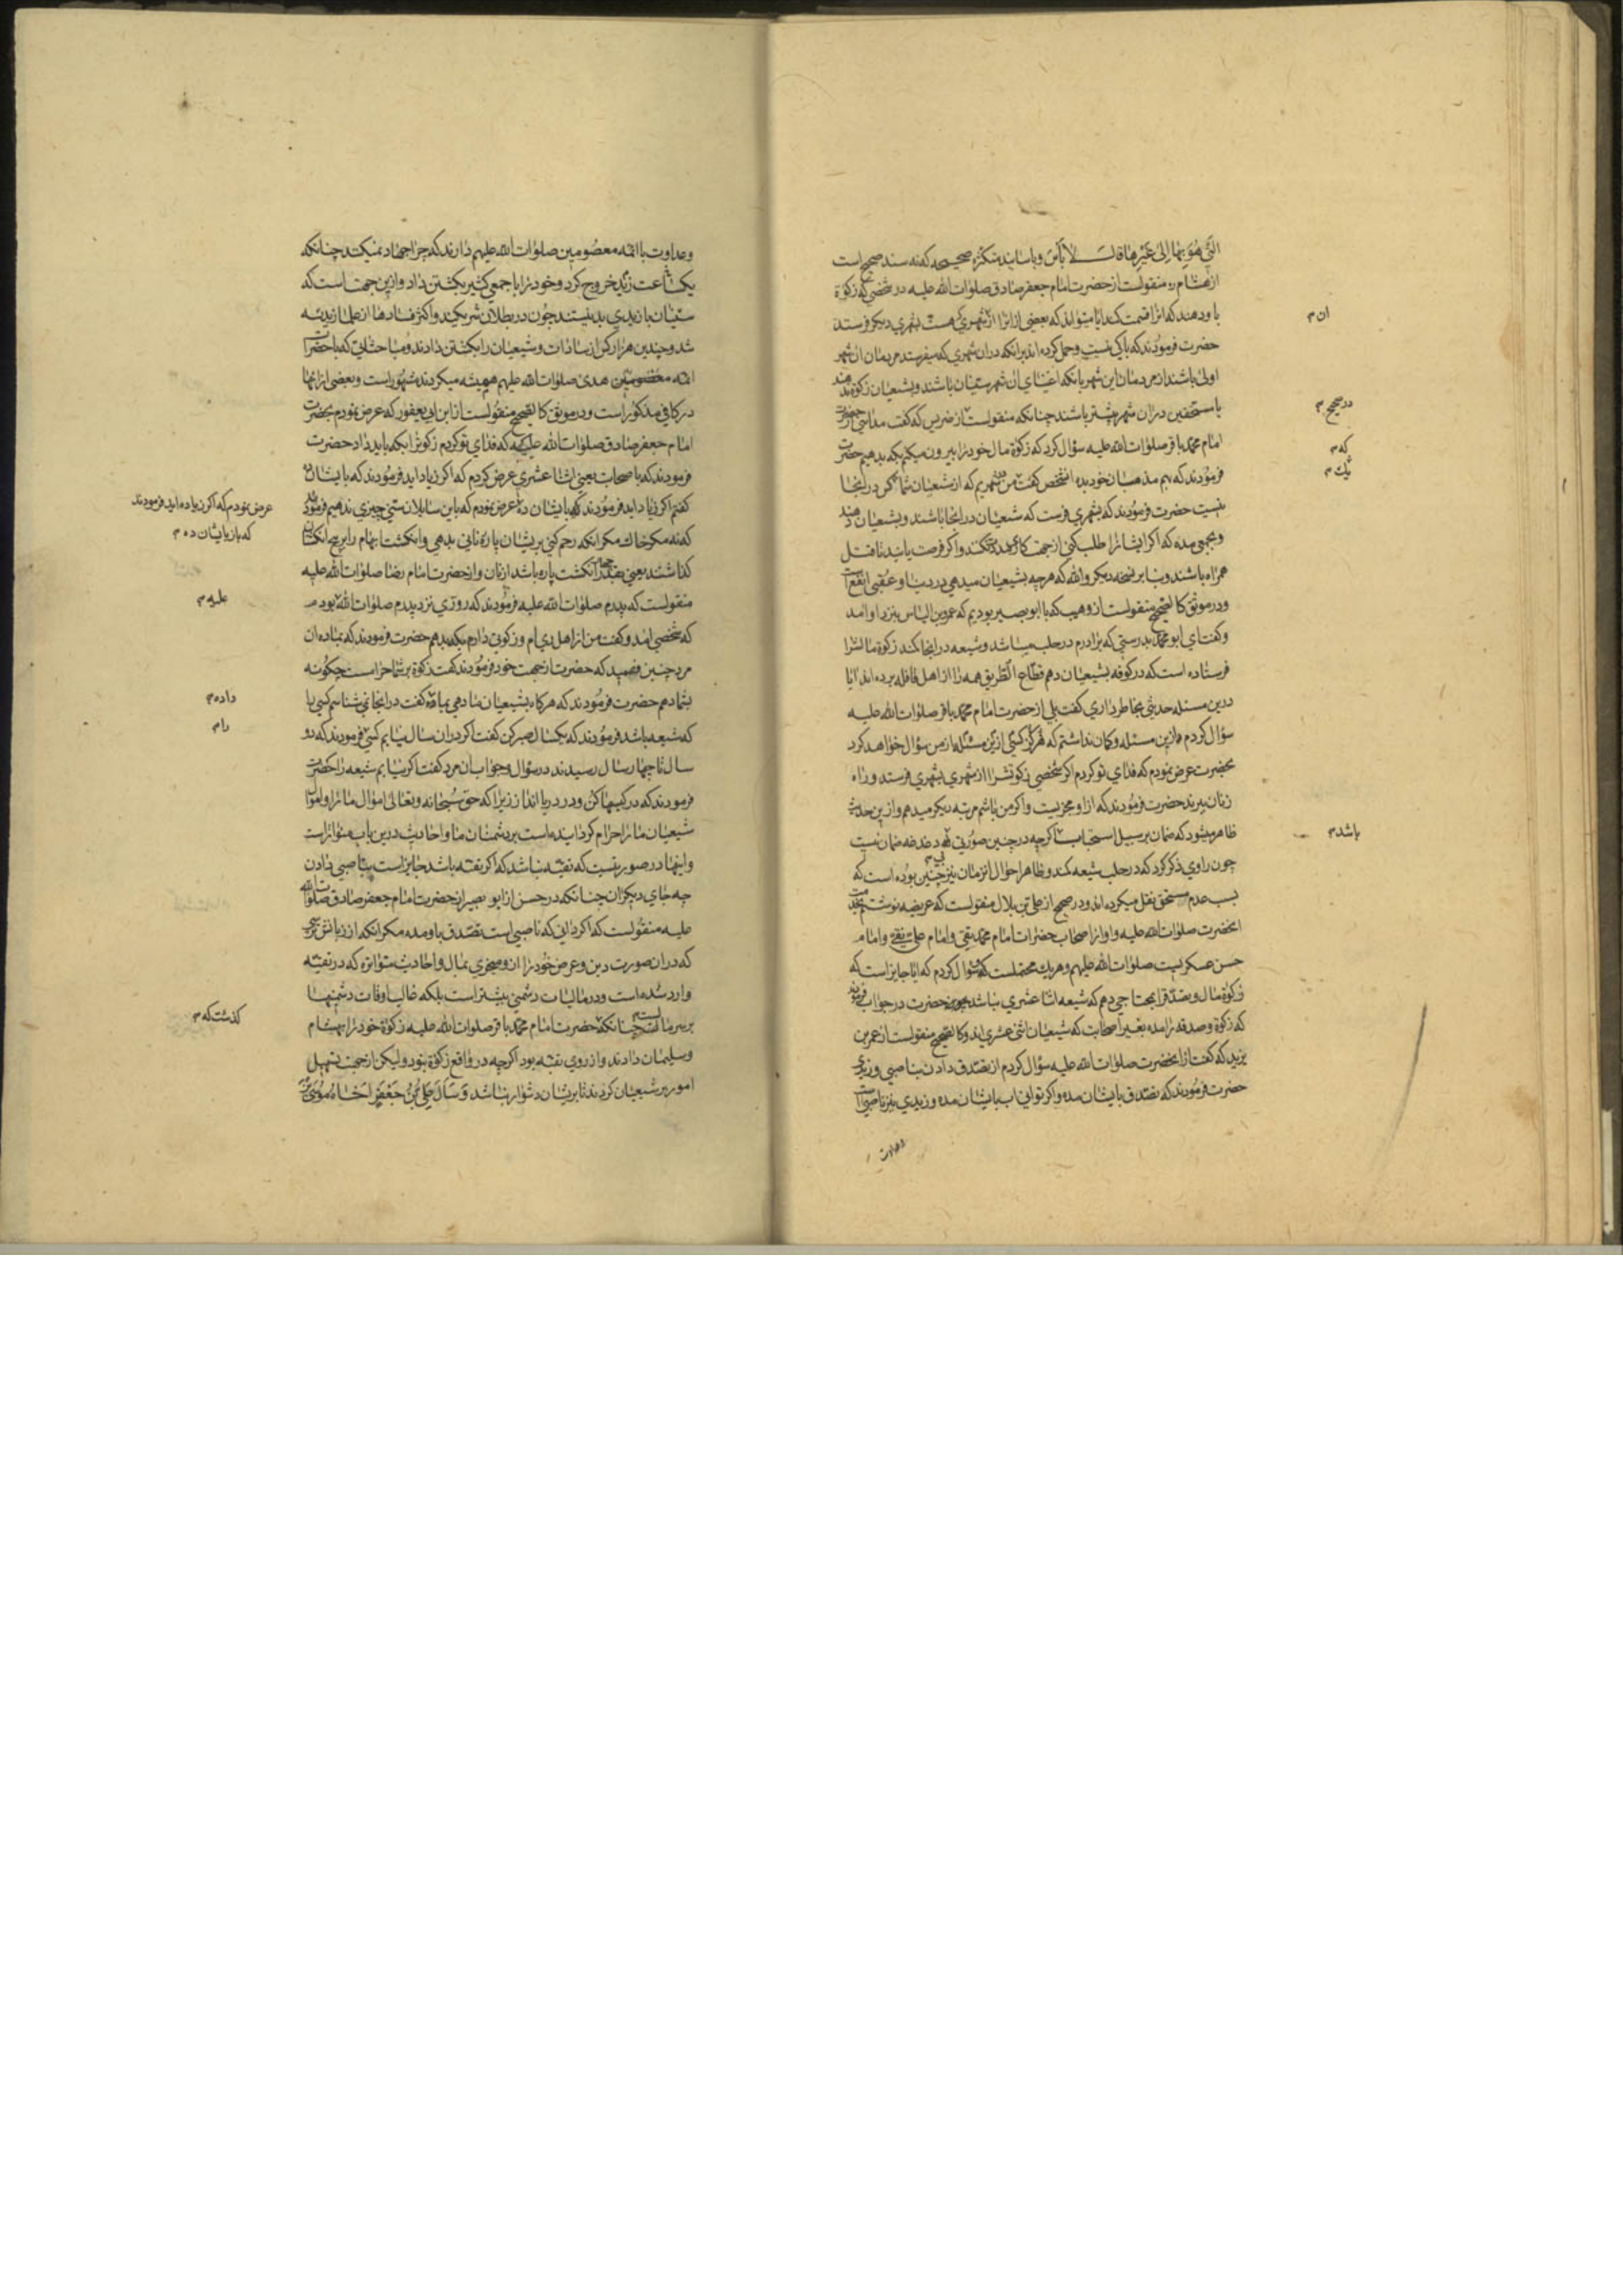 الَّتِي هُوَ بِهَا اِلىٰ غَيْرِهَا قَالَ لاٰ بَأْسَ وباسانيد متكثره صحيحه كه نه سند صحيح است
از هشام ره منقولست از حضرت امام جعفر صادق صلوات الله عليه در شخصي كه زكوة
باو دهند كه انرا قسمت كند ايا ميتواند كه بعضي از انرا از شهري كه هست بشهري ديكر فرستد
حضرت فرمودند كه باكي نيست وحمل كرده اند برانكه دران شهري كه ميفرستد مردمان ان شهر
اولى باشند از مردمان اين شهر بانكه اغنياي ان شهر سنيان باشند وبشيعيان زكوة ندهند
يا مستحقين دران شهر بيشتر باشند چنانكه منقولست از ضريس كه كفت مدايني از حضرت
امام محمد باقر صلوات الله عليه سؤال كرد كه زكوة مال خود را بيرون ميكنم بكه بدهيم حضرت
فرمودند كه بهم مذهبان خود بده انشخص كفت من در شهريم كه از شيعيان شما كس در اينجا
نيست حضرت فرمودند كه بشهري فرست كه شيعيان در انجا باشند وبشيعيان دهند
وبجمعي مده كه اكر ايشانرا طلب كني از جهت كار مدد نكنند واكر فرصت يابند با قتل
همراه باشند وبنا بر نسخه ديكر والله كه هرچه بشيعيان ميدهي در دنيا وعقبى انفع است
ودر موثق كالصحيح منقولست از وهيب كه با ابو بصير بوديم كه عمرو بن الياس بنزد او امد
وكفت اي ابو محمد بدرستي كه برادرم در حلب ميباشد وشيعه در انجا كمند زكوة مالش را
فرستاده است كه در كوفه بشيعيان دهم قطاع الطريق همه را از اهل قافله برده اند ايا
درين مسئله حديثي بخاطر داري كفت بلي از حضرت امام محمد باقر صلوات الله عليه
سؤال كردم ازين مسئله وكمان نداشتم كه هركز كسي ازين مسئله از من سؤال خواهد كرد
بحضرت عرض نمودم كه فداي تو كردم اكر شخصي زكوتش را از شهري بشهري فرستد وراه
زنان ببرند حضرت فرمودند كه از او مجزيست واكر من باشم مرتبه ديكر ميدهم وازين حديث
ظاهر ميشود كه ضمان بر سبيل استحباب اكرچه درچنين صورتي كه دغدغه ضمان نيست
چون راوي ذكر كرد كه در حلب شيعه كمند وظاهر احوال انزمان نيز چنين بوده است كه
بسبب عدم مستحق نقل ميكرده اند ودر صحيح از علي بن بلال منقولست كه عريضه نوشتم بخدمت
انحضرت صلوات الله عليه واو از اصحاب حضرات امام محمد تقي وامام علي نقي وامام
حسن عسكريست صلوات الله عليهم وهريك محتملست كه سؤال كردم كه ايا جايز است كه
زكوة مال وتصدق را بمحتاجي دهم كه شيعه اثنا عشري نباشد حضرت در جواب فرمودند
كه زكوة وصدقه را مده بغير اصحابت كه شيعيان اثنى عشري اند وكالصحيح منقولست از عمر بن
يزيد كه كفت از انحضرت صلوات الله عليه سؤال كردم از تصدق دادن بناصبي وزيدي
حضرت فرمودند كه تصدق بايشان مده واكر تواني اب بايشان مده وزيدي نيز ناصبي است
وعداوت
ان م
در صحيح م
كه م
يك م
باشد م
وعداوت با ائمه معصومين صلوات الله عليهم دارند كه چرا جهاد نميكند چنانكه
يكساعت زيد خروج كرد وخود را با جمعي كثير بكشتن داد وازين جهت است كه
سنيان با زيدي بد نيستند چون در بطلان شريكند واكثر فسادها از علماء زيديه
شد وچندين هزار كس از سادات وشيعيان را بكشتن دادند ومباحثاتي كه با حضرات
ائمه معصومين هدى صلوات الله عليهم هميشه ميكردند مشهور است وبعضي از انها
در كافي مذكور است ودر موثق كالصحيح منقولست از ابن ابي يعفور كه عرض نمودم بحضرت
امام جعفر صادق صلوات الله عليه كه فداي تو كردم زكوة را بكه بايد داد حضرت
فرمودند كه باصحابت يعني اثنا عشري عرض كردم كه اكر زياد ايد فرمودند كه بايشان ده
كفتم اكر زياد ايد فرمودند كه بايشان ده عرض نمودم كه باين سايلان سني چيزي ندهيم فرمودند
كه نه مكر خاك مكر انكه رحم كني بريشان پاره ناني بدهي وانكشت ابهام را بر بيخ انكشتان
كذاشتند يعني بقدر انكشت پاره باشد از نان واز حضرت امام رضا صلوات الله عليه
منقولست كه پدرم صلوات الله عليه فرمودند كه روزي نزد پدرم صلوات الله بودم
كه شخصي امد وكفت من از اهل ري ام وزكوتي دارم بكه بدهم حضرت فرمودند كه بما ده ان
مرد چنين فهميد كه حضرت از جهت خود فرمودند كفت زكوة بر شما حرام است چكونه
بشما دهم حضرت فرمودند كه هركاه بشيعيان ما دهي بما كفت در انجا نمي شناسم كسي را
كه شيعه باشد فرمودند كه يكسال صبر كن كفت اكر دران سال نيابم كسي فرمودند كه دو
سال تا چهار سال رسيدند در سؤال وجواب ان مرد كفت اكر نيابم شيعه را حضرت
فرمودند كه در كيسها كن ودر دريا انداز زيرا كه حق سبحانه وتعالى اموال ما را واموال
شيعيان ما را حرام كردانيده است بر دشمنان ما واحاديث درين باب متواتر است
واينها در صورتيست كه تقيه نباشد كه اكر تقيه باشد جايز است بناصبي دادن
چه جاي ديكران چنانكه در حسن از ابو بصير از حضرت امام جعفر صادق صلوات الله
عليه منقولست كه اكر داني كه ناصبي است تصدق باو مده مكر انكه از زبانش ترسي
كه دران صورت دين وعرض خود را از او ميخري بمال واحاديث متواتره كه در تقيه
وارد شده است ودر ماليات دشمني بيشتر است بلكه غالب اوقات دشمنيها
بر سر مال است چنانكه حضرت امام محمد باقر صلوات الله عليه زكوة خود را بهشام
وسليمان دادند واز روي تقيه بود اكرچه در واقع زكوة نبود وليكن از جهت تسهيل
امور بر شيعيان كردند تا بريشان دشوار نباشد وَسَأَلَ عَلِيُّ بْنُ جَعْفَرٍ اَخَاهُ مُوسَى بْنَ
عرض نمودم كه اكر زياده ايد فرمودند
كه باز بايشان ده م
عليه م
داده م
را م
كذشت كه م